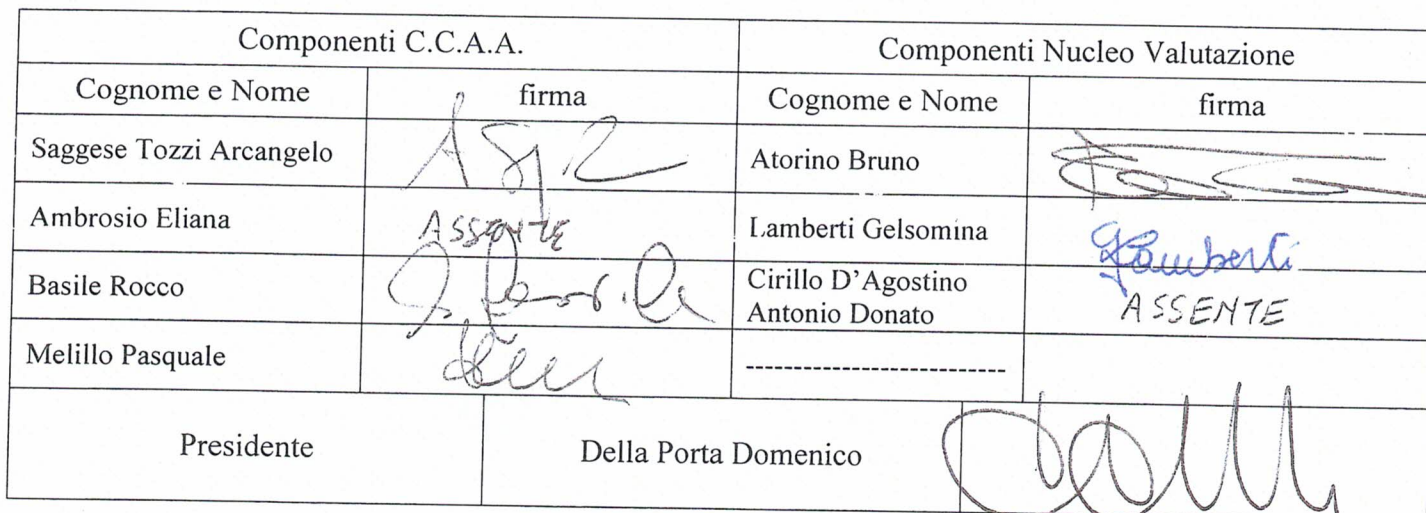 Componenti C.C.A.A. Componenti Nucleo Valutazione
Cognome e Nome firma Cognome e Nome firma
Saggese Tozzi Arcangelo Atorino Bruno
Ambrosio Eliana ASSENTE Lamberti Gelsomina GLamberti
Basile Rocco Cirillo D'Agostino
Antonio Donato ASSENTE
Melillo Pasquale --------------------------
Presidente Della Porta Domenico